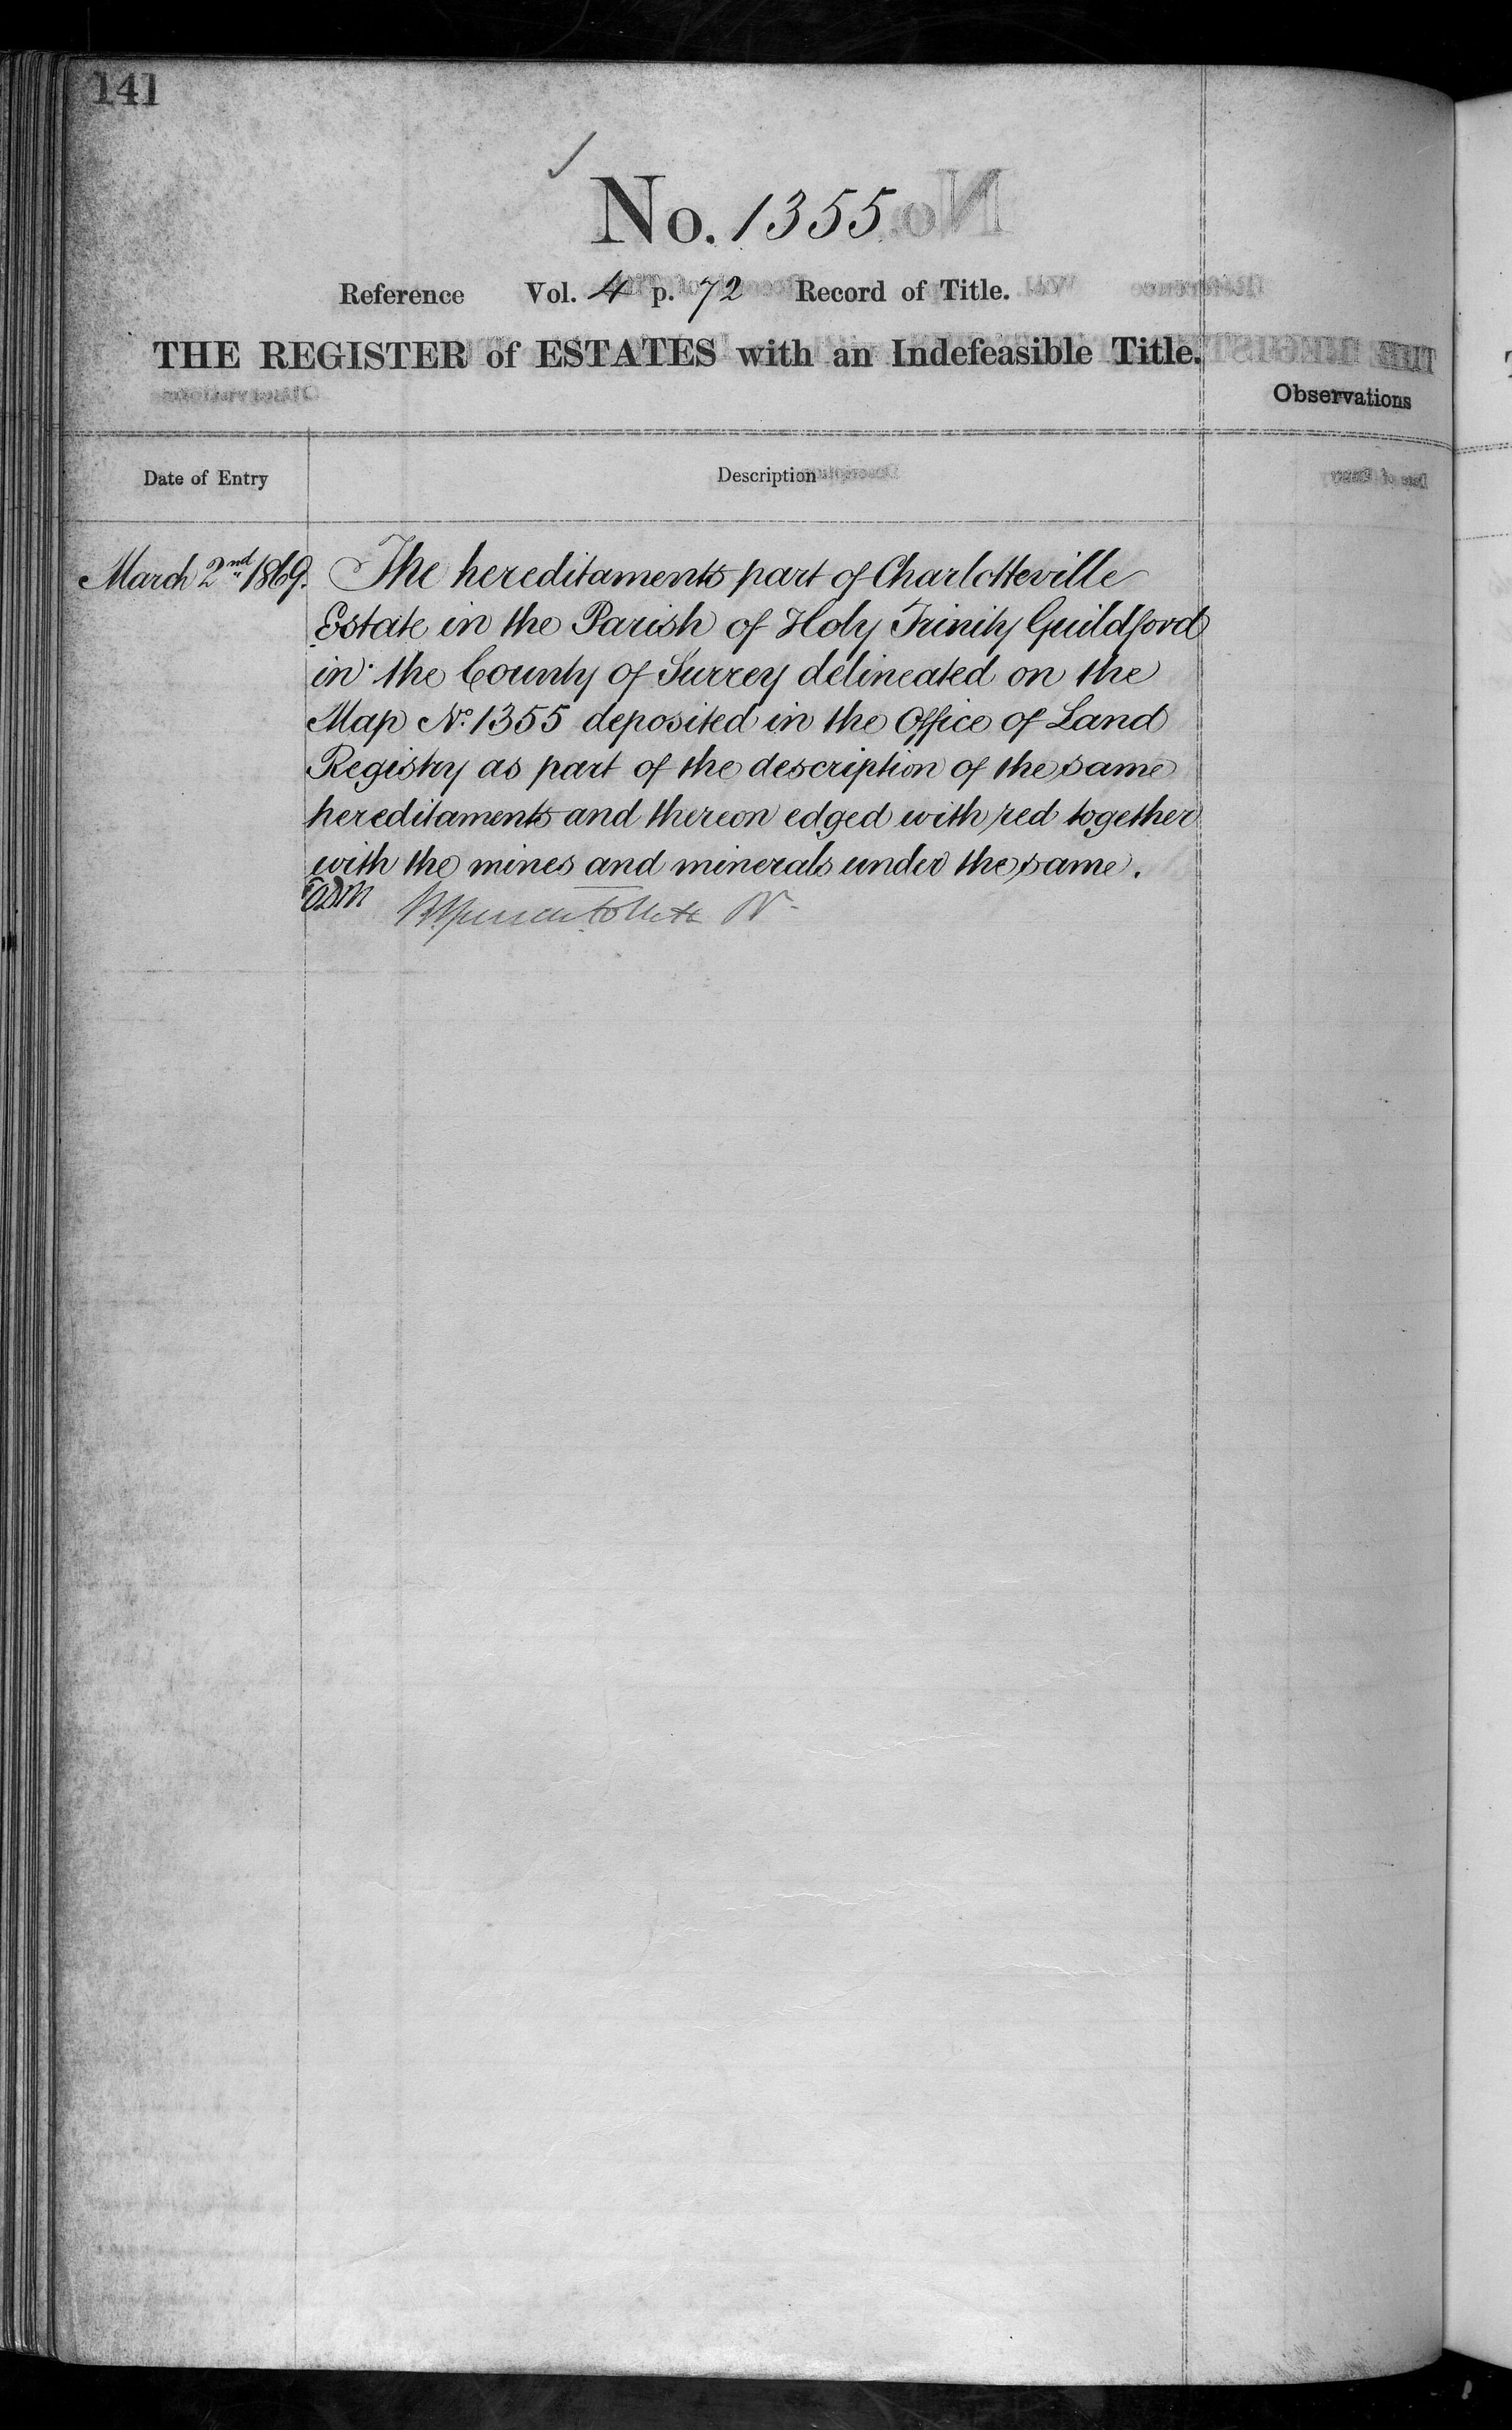 141
No. 1355
Reference Vol. 4 p. 72 Record of Title.
THE REGISTER of ESTATES with an Indefeasible Title.
Observations
Date of Entry
Description
March 2nd 1869. The hereditaments part of Charlotteville
Estate in the Parish of Holy Trinity Guildford
in the County of Surrey delineated on the
Map No. 1355 deposited in the Office of Land
Registry as part of the description of the same
hereditaments and thereon edged with red together
with the mines and minerals under the same.